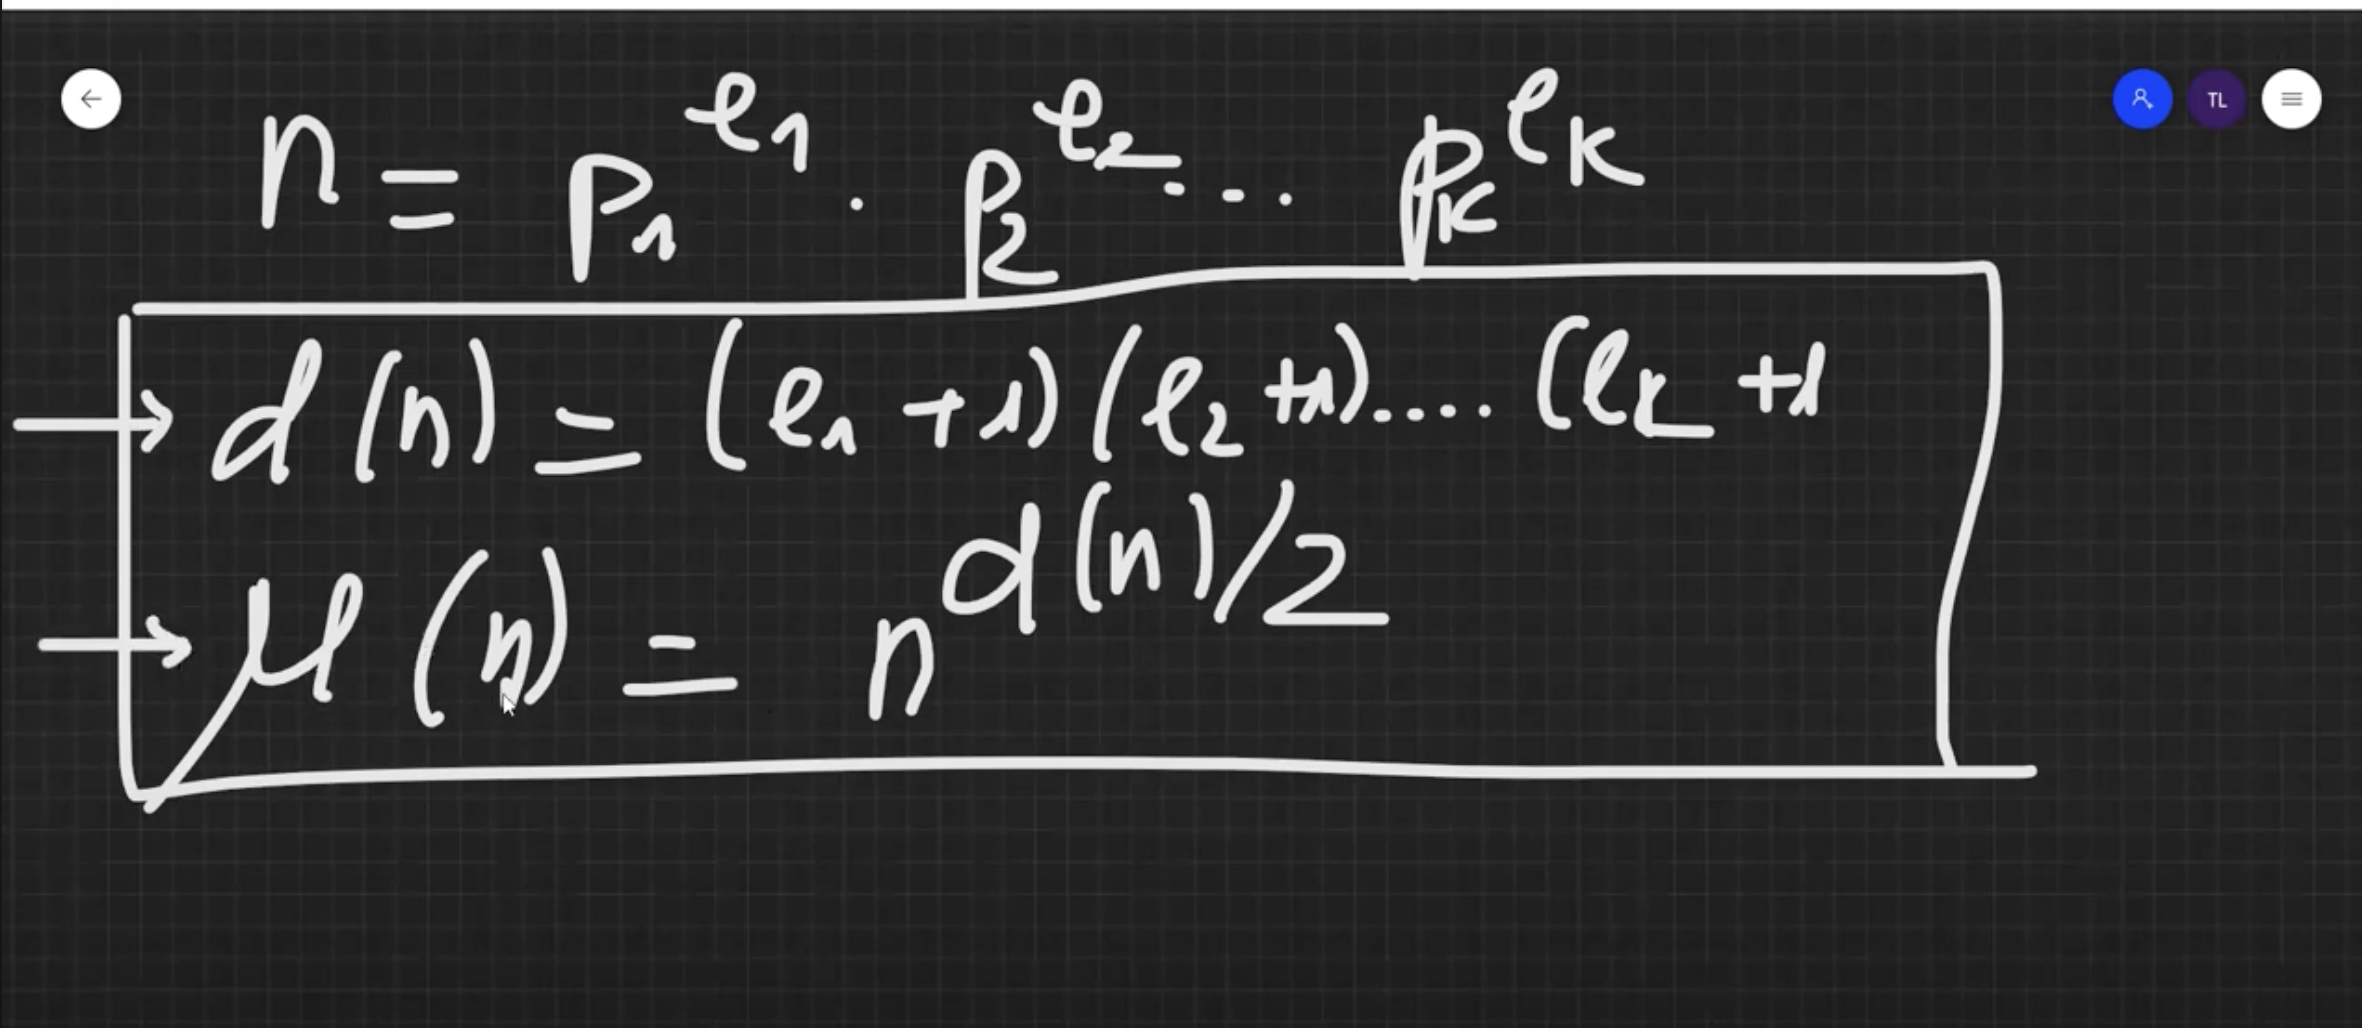 TL
n = p₁^e₁ · p₂^e₂ ... pₖ^eₖ
d(n) = (e₁+1)(e₂+1).... (eₖ+1
μ(n) = n^d(n)/2